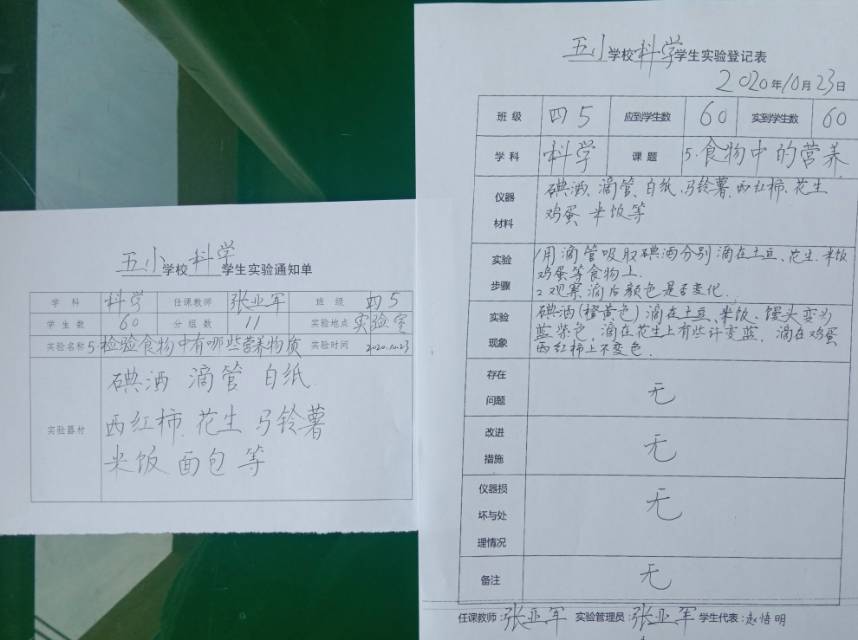 五小学校科学学生实验通知单
学科 科学 任课教师 张亚军 班级 四5
学生数 60 分组数 11 实验地点 实验室
实验名称 5.检验食物中有哪些营养物质 实验时间 2020.10.23
实验器材
碘酒 滴管 白纸
西红柿、花生 马铃薯
米饭 面包 等
五小学校科学学生实验登记表
2020年10月23日
班级 四5 应到学生数 60 实到学生数 60
学科 科学 课题 5.食物中的营养
仪器材料
碘酒、滴管、白纸、马铃薯、西红柿、花生
鸡蛋 米饭等
实验步骤
1用滴管吸取碘酒分别滴在土豆、花生、米饭
鸡蛋等食物上.
2观察滴后颜色是否变化.
实验现象
碘酒(橙黄色)滴在土豆、米饭、馒头变为
蓝紫色,滴在花生上有些许变蓝,滴在鸡蛋
西红柿上不变色.
存在问题 无
改进措施 无
仪器损坏与处理情况 无
备注 无
任课教师:张亚军 实验管理员:张亚军 学生代表:赵悟明